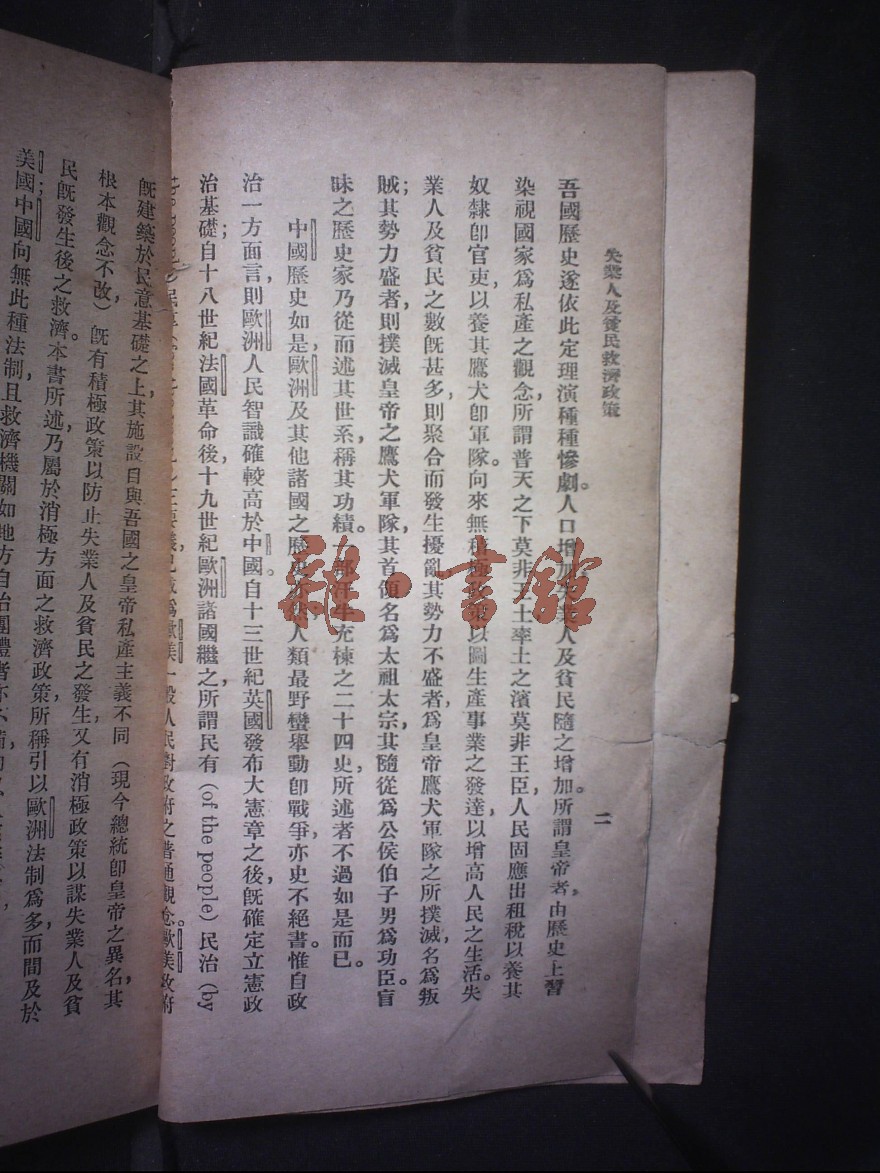 失業人及貧民救濟政策
二
吾國歷史遂依此定理演種種慘劇。人口增加失業人及貧民隨之增加。所謂皇帝者，由歷史上習
染視國家爲私產之觀念，所謂普天之下莫非王土率土之濱莫非王臣，人民固應出租稅以養其
奴隸卽官吏，以養其鷹犬卽軍隊。向來無積極政策以圖生產事業之發達，以增高人民之生活。失
業人及貧民之數旣甚多，則聚合而發生擾亂其勢力不盛者，爲皇帝鷹犬軍隊之所撲滅，名爲叛
賊；其勢力盛者，則撲滅皇帝之鷹犬軍隊，其首領名爲太祖太宗，其隨從爲公侯伯子男爲功臣。盲
昧之歷史家乃從而述其世系，稱其功績。一部汗牛充棟之二十四史，所述者不過如是而已。
中國歷史如是，歐洲及其他諸國之歷史亦然。人類最野蠻舉動卽戰爭，亦史不絕書。惟自政
治一方面言，則歐洲人民智識確較高於中國。自十三世紀英國發布大憲章之後，旣確定立憲政
治基礎；自十八世紀法國革命後，十九世紀歐洲諸國繼之，所謂民有 (of the people) 民治 (by
爲歐美一般人民對政府之普通觀念。歐美政府
旣建築於民意基礎之上，其施設自與吾國之皇帝私產主義不同（現今總統卽皇帝之異名，其
根本觀念不改）旣有積極政策以防止失業人及貧民之發生，又有消極政策以謀失業人及貧
民旣發生後之救濟。本書所述，乃屬於消極方面之救濟政策，所稱引以歐洲法制爲多，而間及於
美國；中國向無此種法制，且救濟機關如地方自治團體者亦不備